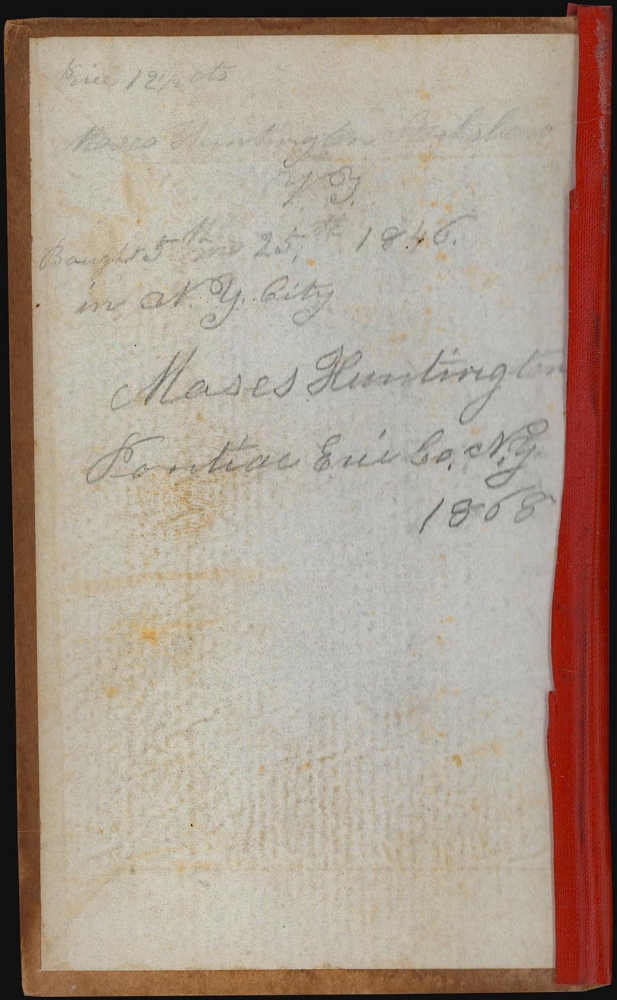 Price 12½ cts
Moses Huntington Starksboro
V Y.
Bought 5th mo 25th 1846.
in N. Y. City
Moses Huntington
Pontiac Erie Co. N.Y
1868